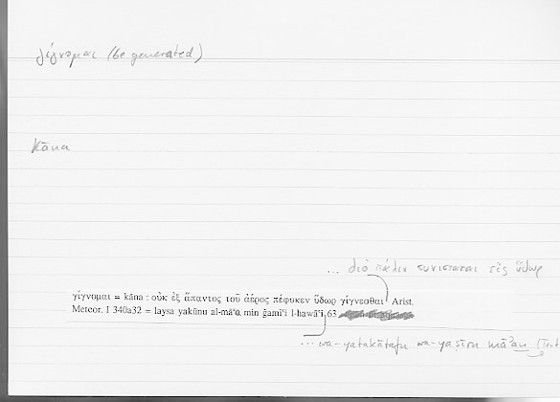 γίγνομαι (be generated)
kāna
... διὸ πάλιν συνίσταται εἰς ὕδωρ
γίγνομαι = kāna : οὐκ ἐξ ἅπαντος τοῦ ἀέρος πέφυκεν ὕδωρ γίγνεσθαι Arist.
Meteor. I 340a32 = laysa yakūnu al-māʾa min ǧamīʿi l-hawāʾi 63
... wa-yatakāṯafu wa-yaṣīru māʾan (Text